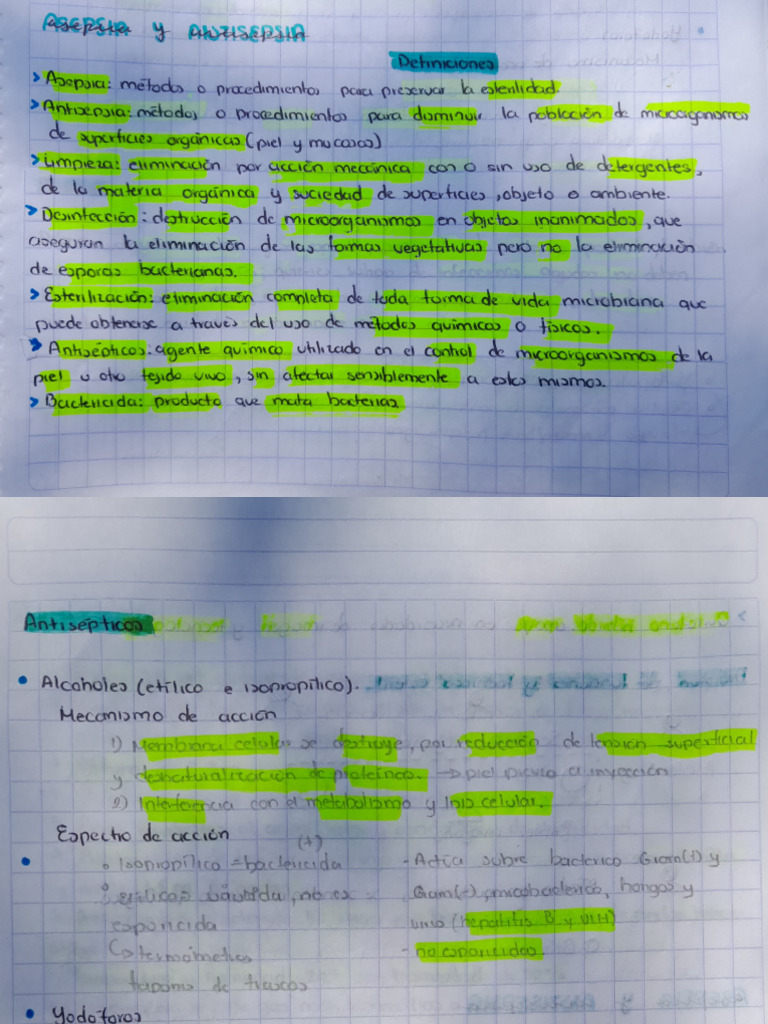 ASEPSIA y ANTISEPSIA
Definiciones
> Asepsia: métodos o procedimientos para preservar la esterilidad.
> Antisepsia: métodos o procedimientos para disminuir la población de microorganismos
de superficies orgánicas (piel y mucosas)
> Limpieza: eliminación por acción mecánica con o sin uso de detergentes,
de la materia orgánica y suciedad de superficies, objeto o ambiente.
> Desinfección: destrucción de microorganismos en objetos inanimados, que
aseguran la eliminación de las formas vegetativas pero no la eliminación
de esporas bacterianas.
> Esterilización: eliminación completa de toda forma de vida microbiana que
puede obtenerse a través del uso de métodos químicos o físicos.
> Antisépticos: agente químico utilizado en el control de microorganismos de la
piel u otro tejido vivo, sin afectar sensiblemente a estos mismos.
> Bactericida: producto que mata bacterias
Antisépticos
• Alcoholes (etílico e isopropílico).
Mecanismo de acción
1) Membrana celular se destruye, por reducción de tensión superficial
y desnaturalización de proteínas. → piel previa a inyección
2) Interferencia con el metabolismo y lisis celular.
Espectro de acción
(+)
• Isopropílico = bactericida - Actúa sobre bacterias Gram(+) y
no es Gram(-), micobacterias, hongos y
esporicida virus (hepatitis B y VIH)
termómetros - no esporicidas.
tapones de frascos
• Yodóforos